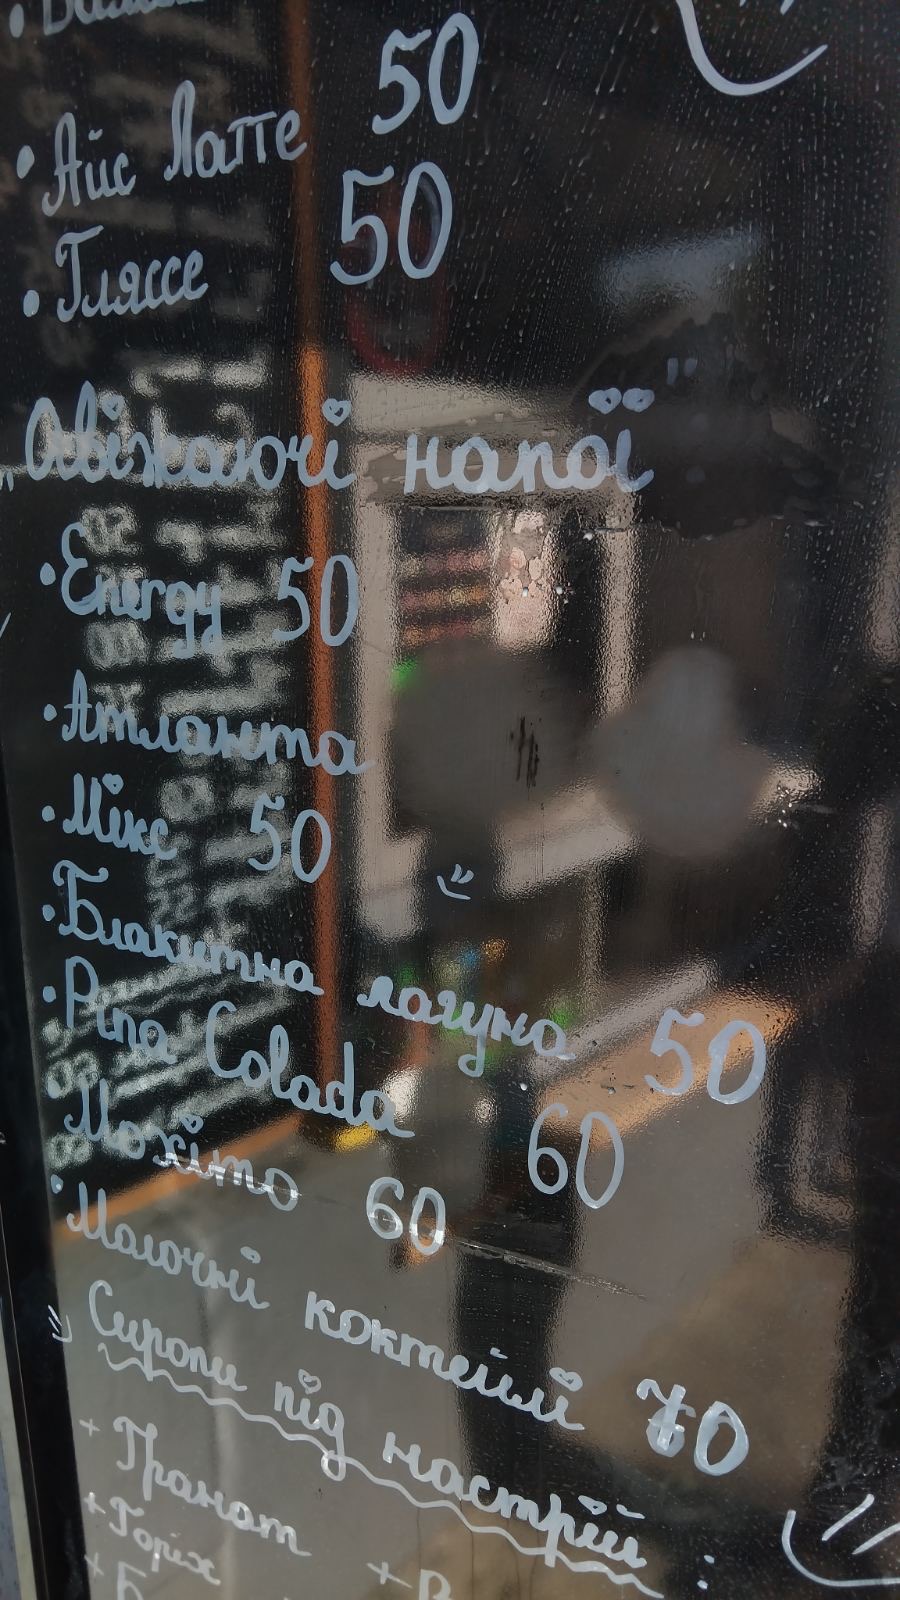 • Айс Латте 50
• Гляссе 50
„Освіжаючі напої"
• Energy 50
• Атланта
• Мікс 50
• Блакитна лагуна 50
• Pina Colada 60
Мохіто 60
• Молочні коктейлі 70
Сиропи під настрій:
+ Гранат
+ Горіх